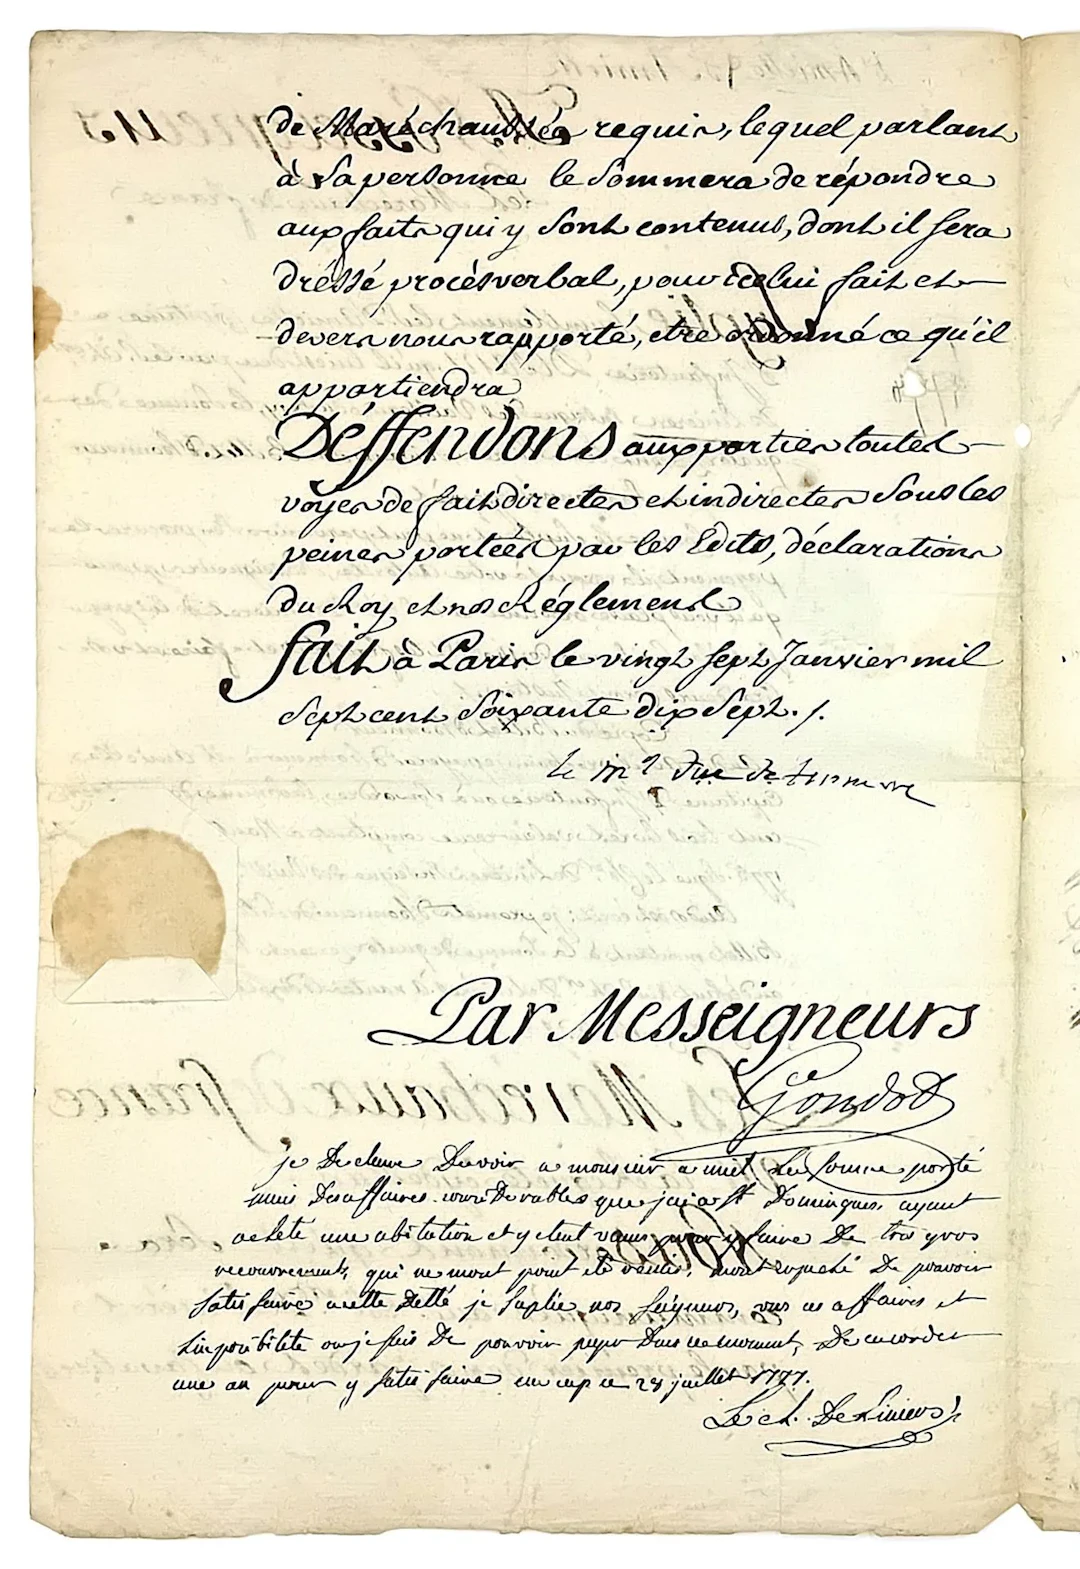 de Maréchaussée requis, lequel parlant
à sa personne le sommera de répondre
aux faits qui y sont contenus, dont il sera
dréssé procès verbal, pour icelui fait et
devers nous rapporté, etre ordonné ce qu'il
appartiendra
Déffendons aux parties toutes
voyes de fait directes et indirectes sous les
peines portées par les Edits, déclarations
du Roy et nos Réglements
fait à Paris le vingt sept Janvier mil
sept cent soixante dix sept ./.
le mal duc de tonnerre
Par Messeigneurs
Gondot
je Declare Devoir a monsieur amiel La somme porté
mais Des affaires que jai a st Domingue, ayant
acheté une abitation et y etent venus pour y faire De tres gros
recouvrements, qui ne mont point été De pouvoir
satisfaire a cette Detté je suplie nos seigneurs, vus ces affaires et
Limposibilite ou je suis De pouvoir payer Dans ce moment, De macorder
une an pour y satisfaire au cap ce 28 juillet 1777.
Le ch. De Liniers